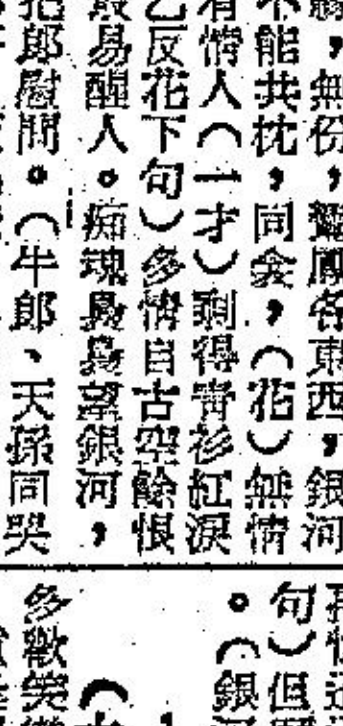 無份，鸞鳳各東西，銀河
不能共枕，同衾，（花）無情
有情人（一才）剩得青衫紅淚
乙反花下句）多情自古空餘恨
最易醒人。痴魂裊裊望銀河，
把郎慰問。（牛郎、天孫同哭
句）但
。（銀
（
多歡笑